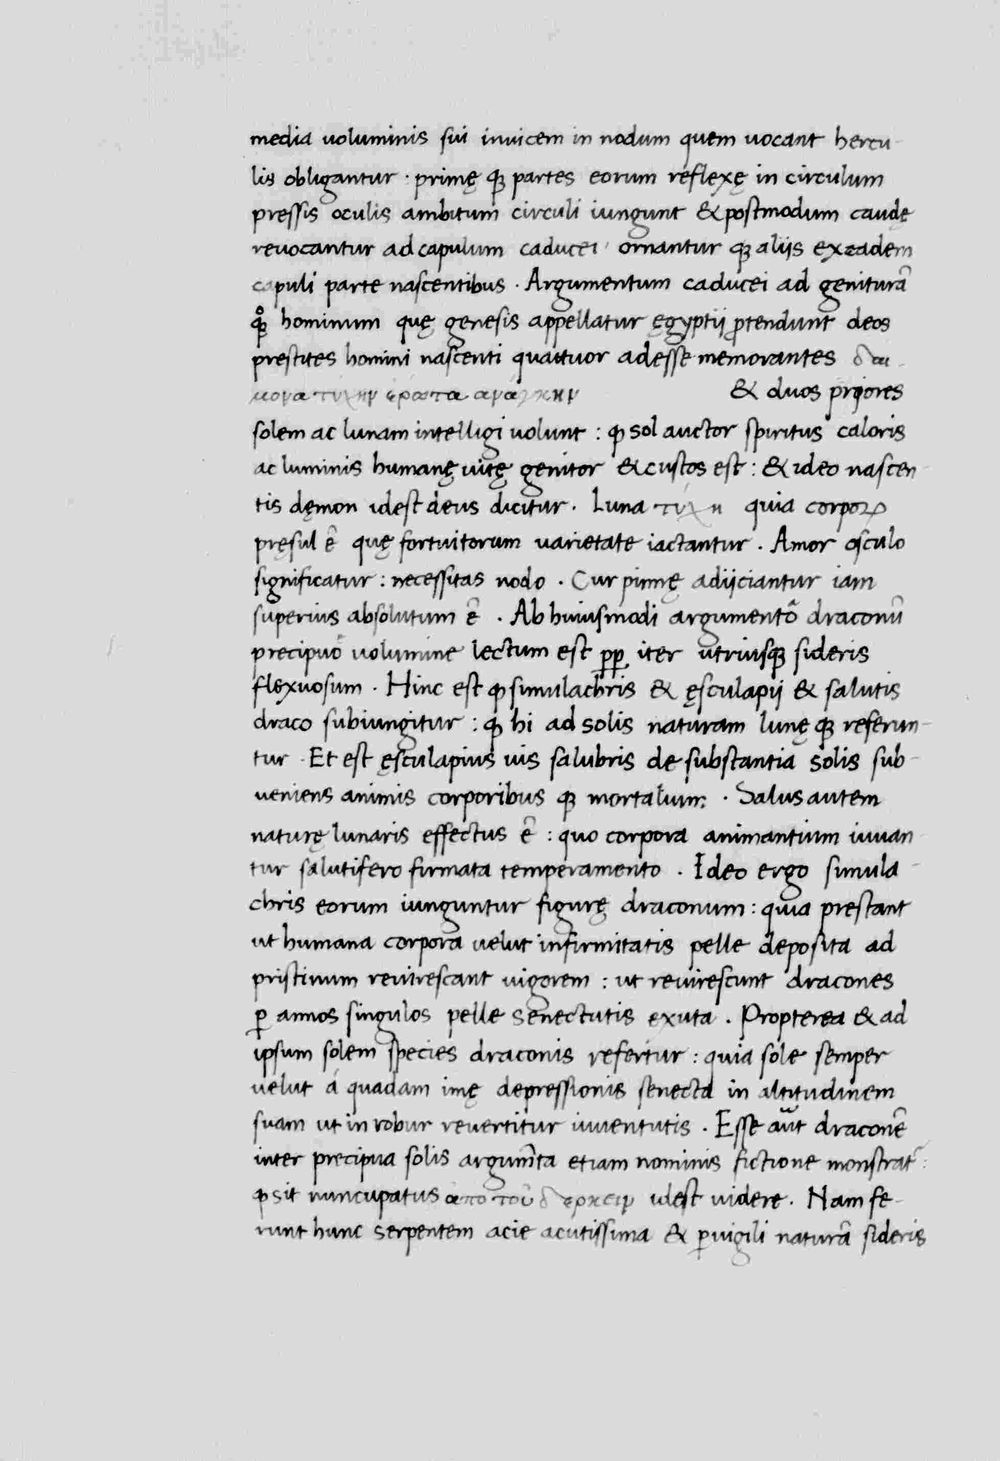 media uoluminis sui inuicem in nodum quem uocant hercu-
lis obligantur : primę q; partes eorum reflexę in circulum
pressis oculis ambitum circuli iungunt & postmodum caudę
reuocantur ad capulum caducei ornantur q; aliis ex eadem
capuli parte nascentibus . Argumentum caducei ad geniturā
qͦq; hominum quę genesis appellatur ęgyptij ꝓtendunt deos
prestites homini nascenti quattuor adesse memorantes δαι-
μονα τυχην ερωτα αναγκην & duos priores
solem ac lunam intelligi uolunt : ꝙ sol auctor spiritus caloris
ac luminis humanę uitę genitor & custos est : & ideo nascen-
tis dęmon idest deus dicitur . Luna τύχη quia corpoꝝ
pręsul ē quę fortuitorum uarietate iactantur . Amor osculo
significatur : necessitas nodo . Cur pinnę adijciantur iam
superius absolutum ē . Ab huiusmodi argumentō draconū
precipuē uolumine lectum est ꝓꝑ iter utriusq; sideris
flexuosum . Hinc est ꝙ simulachris & ęsculapij & salutis
draco subiungitur : ꝙ hi ad solis naturam lunę q; referun-
tur . Et est ęsculapius uis salubris de substantia solis sub-
ueniens animis corporibus q; mortalium . Salus autem
naturę lunaris effectus ē : quo corpora animantium iuuan-
tur salutifero firmata temperamento . Ideo ergo simula-
chris eorum iunguntur figurę draconum : quia prestant
ut humana corpora uelut infirmitatis pelle deposita ad
pristinum reuirescant uigorem : ut reuirescunt dracones
ꝑ annos singulos pelle senectutis exuta . Propterea & ad
ipsum solem species draconis refertur : quia sole semper
uelut á quadam imę depressionis senecta in altitudinem
suam ut in robur reuertitur iuuentutis . Esse aūt draconē
inter precipua solis argumīta etiam nominis fictione monstrat᷑ :
ꝙ sit nuncupatus ἀπο τοῦ δερκειν idest uidere . Nam fe-
runt hunc serpentem acie acutissima & ꝑuigili naturā sideris